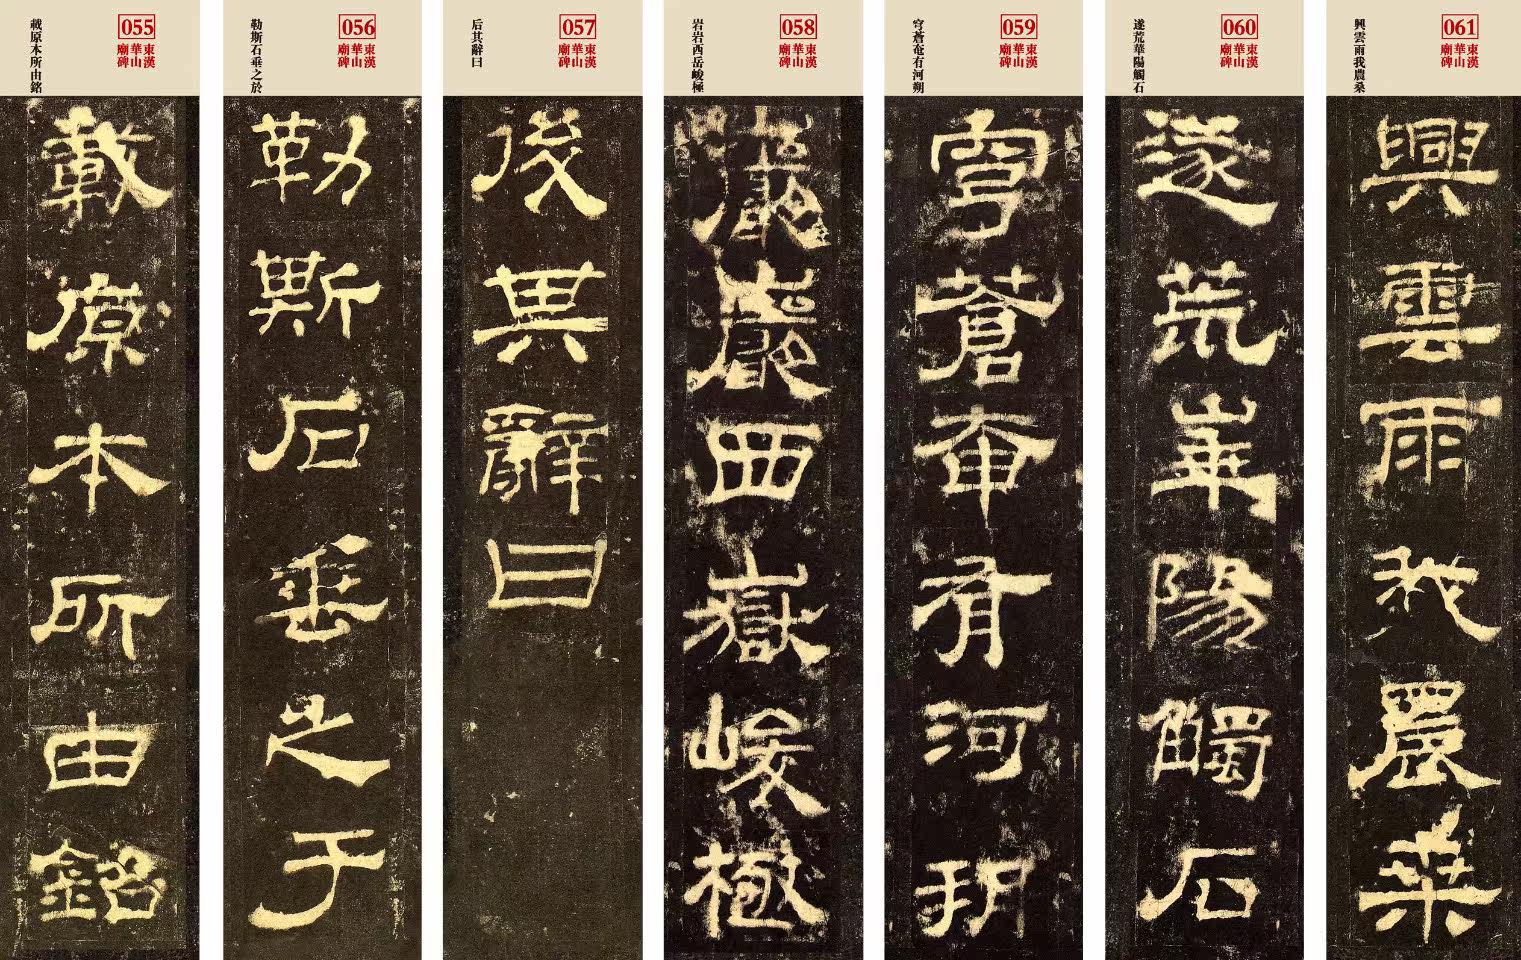 055
東漢
華山
廟碑
載原本所由銘
載原本所由銘
056
東漢
華山
廟碑
勒斯石垂之於
勒斯石垂之于
057
東漢
華山
廟碑
后其辭曰
後其辭曰
058
東漢
華山
廟碑
岩岩西岳峻極
巖巖西嶽峻極
059
東漢
華山
廟碑
穹蒼奄有河朔
穹蒼奄有河朔
060
東漢
華山
廟碑
遂荒華陽觸石
遂荒華陽觸石
061
東漢
華山
廟碑
興雲雨我農桑
興雲雨我農桑